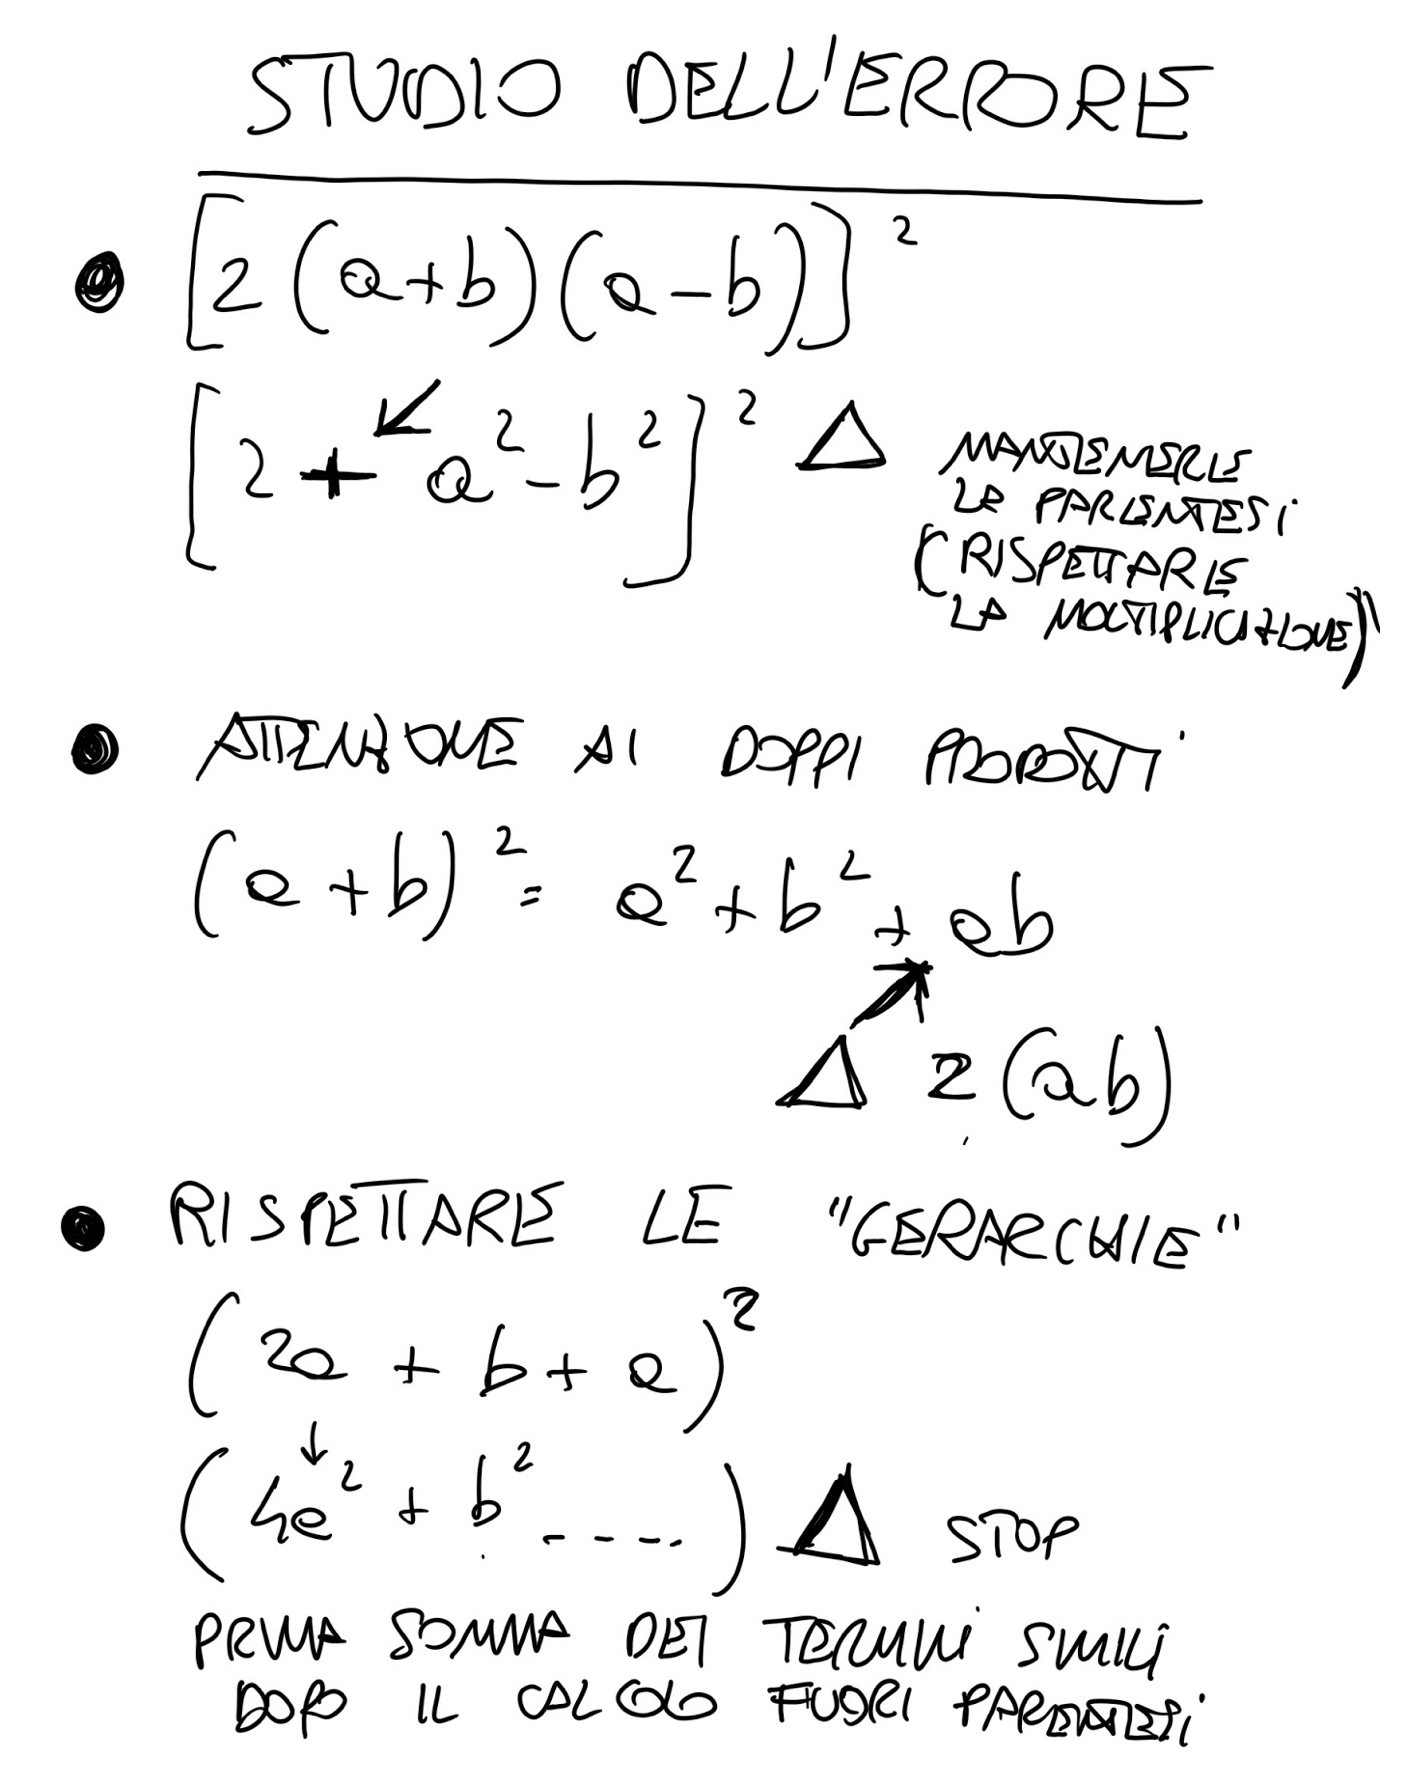 STUDIO DELL'ERRORE
● [2(a+b)(a-b)]²
[2 + a²-b²]² △ MANTENERE
LE PARENTESI
(RISPETTARE
LA MOLTIPLICAZIONE)
● ATTENZIONE AI DOPPI PRODOTTI
(a+b)² = a²+b²+ab
△ 2(ab)
● RISPETTARE LE "GERARCHIE"
(2a + b + a)²
↓
(4a² + b² ----) △ STOP
PRIMA SOMMA DEI TERMINI SIMILI
DOPO IL CALCOLO FUORI PARENTESI